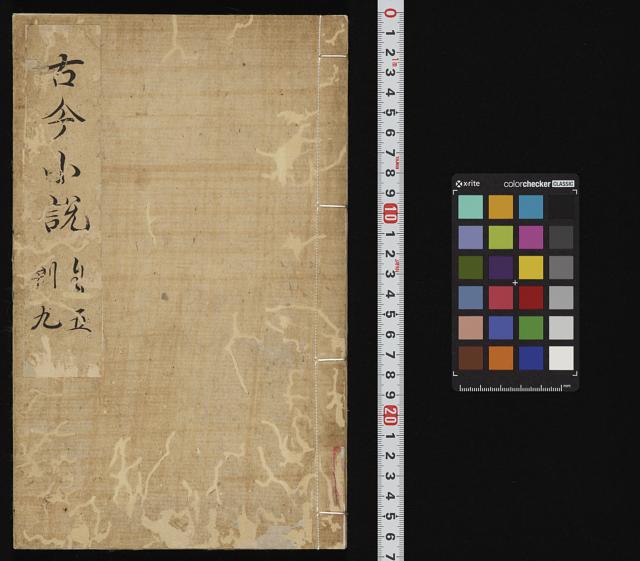 古今小說
自五
到九
0 1 2 3 4 5 6 7 8 9 10 1 2 3 4 5 6 7 8 9 20 1 2 3 4 5 6 7
x-rite colorchecker CLASSIC
mm